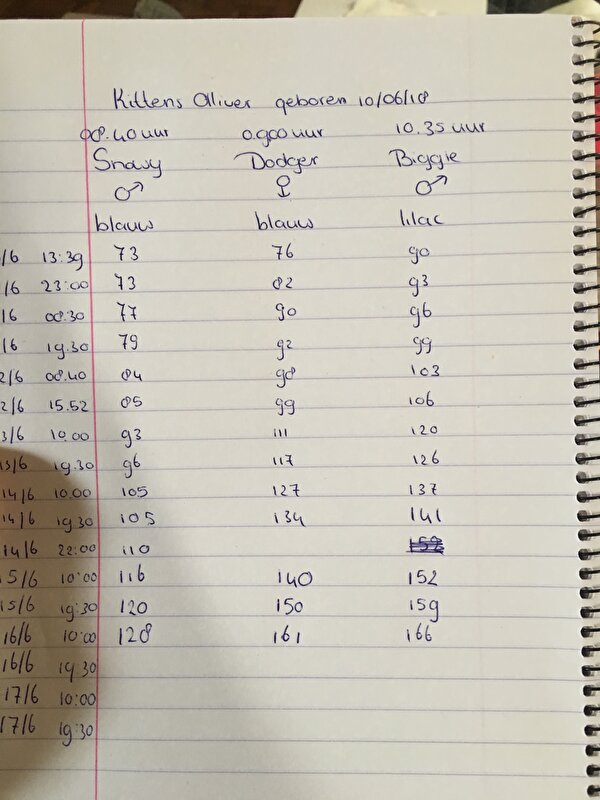 Kittens Olliver geboren 10/06/18
08.40 uur 0.900 uur 10.35 uur
Snowy Dodger Biggie
♂ ♀ ♂
blauw blauw lilac
/6 13:39 73 76 90
/6 23:00 73 82 93
/6 08.30 77 90 96
/6 19.30 79 92 99
2/6 08.40 84 98 103
2/6 15.52 85 99 106
3/6 10.00 93 111 120
13/6 19.30 96 117 126
14/6 10.00 105 127 137
14/6 19.30 105 134 141
14/6 22:00 110
15/6 10:00 116 140 152
15/6 19:30 120 150 159
16/6 10:00 128 161 166
16/6 19.30
17/6 10:00
17/6 19:30